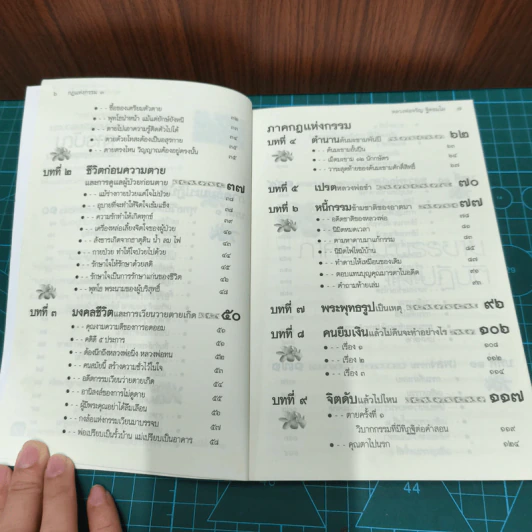 ๖ กฎแห่งกรรม ๒
- - ชื่อของเตรียมตัวตาย
- - พุทโธนำหน้า แม้แต่ยักษ์ยังหนี
- - ตายไปเอาความรู้ติดตัวไปได้
- - ตายด้วยโทสะต้องเป็นอสุรกาย ๓๔
- - ตายตรงไหน วิญญาณต้องอยู่ตรงนั้น ๓๕
บทที่ ๒ ชีวิตก่อนความตาย
และการดูแลผู้ป่วยก่อนตาย ๓๗
- - แม้ร่างกายป่วยแต่ใจไม่ป่วย ๓๘
- - อุบายที่จะทำให้จิตใจเข้มแข็ง ๓๙
- - ความรักทำให้เกิดทุกข์ ๓๙
- - เครื่องหล่อเลี้ยงจิตใจของผู้ป่วย ๔๐
- - สังขารเกิดจากธาตุดิน น้ำ ลม ไฟ ๔๓
- - กายป่วย ทำให้ใจป่วยไปด้วย ๔๔
- - รักษาใจให้รักษาด้วยสติ ๔๕
- - รักษาใจเป็นการรักษาแก่นของชีวิต ๔๖
- - พุทโธ พระนามของผู้บริสุทธิ์ ๔๘
บทที่ ๓ มงคลชีวิตและการเวียนว่ายตายเกิด ๕๐
- - คุณงามความดีของการอดออม ๕๑
- - คติดี ๕ ประการ ๕๑
- - ต้องนึกถึงหลวงพ่อนิ่ง หลวงพ่อทน ๕๒
- - คนสมัยนี้ สร้างความชั่วไว้ในใจ ๕๓
- - อดีตกรรมเวียนว่ายตายเกิด ๕๔
- - อานิสงส์ของการไม่ดูดาย ๕๕
- - ผู้มีพระคุณอย่าได้ลืมเลือน ๕๖
- - กงล้อแห่งกรรมเวียนมาบรรจบ ๕๗
- - พ่อเปรียบเป็นรั้วบ้าน แม่เปรียบเป็นอาคาร ๕๘
หลวงพ่อจรัญ ฐิตธมฺโม ๗
ภาคกฎแห่งกรรม
บทที่ ๔ ตำนานต้นมะขามพันปี ๖๒
- - ต้นมะขามยี่ปั่น ๖๓
- - เมืองมะขาม ๑๒ นักษัตร ๖๔
- - วาระสุดท้ายของต้นมะขามศักดิ์สิทธิ์
บทที่ ๕ เปรตหลวงพ่อขำ ๗๐
บทที่ ๖ หนี้กรรมข้ามชาติของอาตมา ๗๗
- - อดีตชาติของหลวงพ่อ ๗๘
- - นิมิตหมดเวลา
- - ตามหาดาบมาแก้กรรม ๘๐
- - นิมิตไฟไหม้บ้าน
- - ทำดาบให้เหมือนของเดิม
- - ตอบแทนบุญคุณมารดาในอดีต
- - คำถามท้ายเล่ม
บทที่ ๗ พระพุทธรูปเป็นเหตุ ๙๖
บทที่ ๘ คนยืมเงินแล้วไม่คืนจะทำอย่างไร ๑๐๖
- - เรื่อง ๑ ๑๐๘
- - เรื่อง ๒ ๑๑๑
- - เรื่อง ๓ ๑๑๔
บทที่ ๙ จิตดับแล้วไปไหน ๑๑๗
- - ตายครั้งที่ ๑
วิบากกรรมที่มีทิฏฐิต่อคำสอน ๑๑๙
- - คุณตาไปนรก ๑๒๔
44